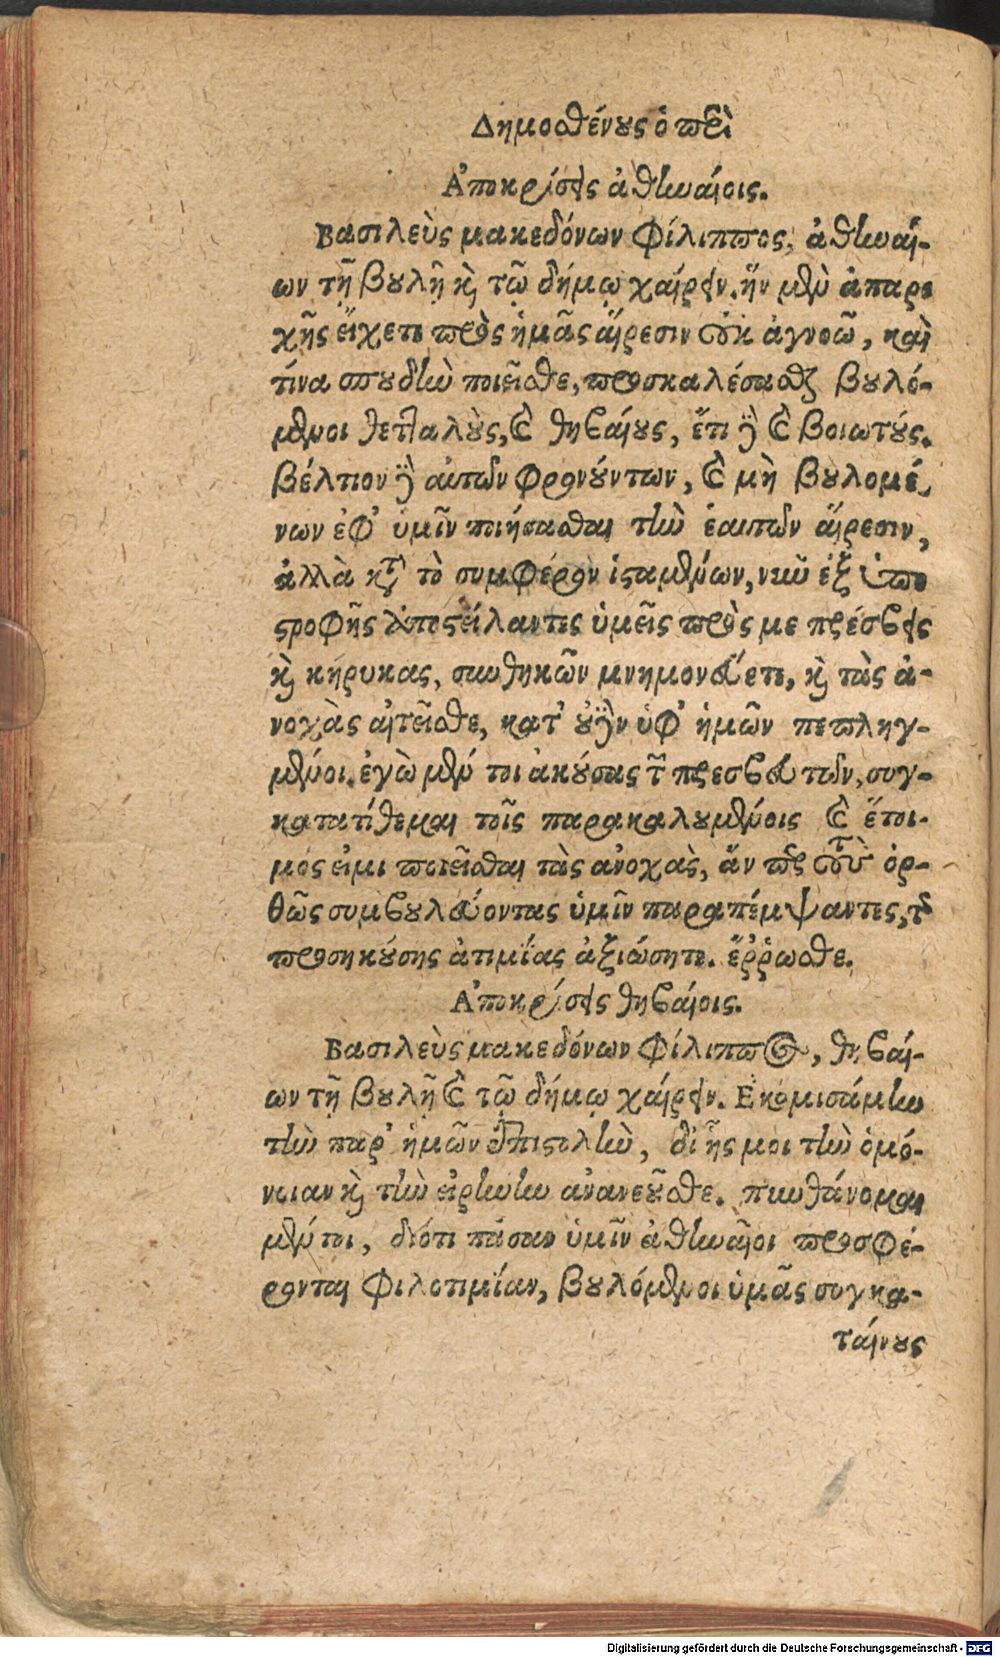 Δημοσθένους ὁ περὶ
Ἀποκρίσεις ἀθηναίοις.
Βασιλεὺς μακεδόνων Φίλιππος, ἀθηναί-
ων τῇ βουλῇ καὶ τῷ δήμῳ χαίρειν. ἣν μὲν ἀπαρ
χῆς εἴχετε πρὸς ἡμᾶς αἵρεσιν οὐκ ἀγνοῶ, καὶ
τίνα σπουδὴν ποιεῖσθε, προσκαλέσασθαι βουλό-
μενοι θετταλοὺς, καὶ θηβαίους, ἔτι δὲ καὶ βοιωτούς.
βέλτιον δὲ αὐτῶν φρονούντων, καὶ μὴ βουλομέ
νων ἐφ' ὑμῖν ποιήσασθαι τὴν ἑαυτῶν αἵρεσιν,
ἀλλὰ κατὰ τὸ συμφέρον ἱσταμένων, νῦν ἐξ ὑπο
στροφῆς ἀποστείλαντες ὑμεῖς πρός με πρέσβεις
καὶ κήρυκας, συνθηκῶν μνημονεύετε, καὶ τὰς ἀ-
νοχὰς αἰτεῖσθε, κατ' οὐδὲν ὑφ' ἡμῶν πεπληγ-
μένοι. ἐγὼ μέν τοι ἀκούσας τῶν πρεσβευτῶν, συγ-
κατατίθεμαι τοῖς παρακαλουμένοις καὶ ἕτοι-
μός εἰμι ποιεῖσθαι τὰς ἀνοχὰς, ἄν περ τοὺς οὐκ ὀρ-
θῶς συμβουλεύοντας ὑμῖν παραπέμψαντες, τῆς
προσηκούσης ἀτιμίας ἀξιώσητε. ἔῤῥωσθε.
Ἀποκρίσεις θηβαίοις.
Βασιλεὺς μακεδόνων Φίλιππος, θηβαί-
ων τῇ βουλῇ καὶ τῷ δήμῳ χαίρειν. Ἐκομισάμην
τὴν παρ' ἡμῶν ἐπιστολὴν, δι' ἧς μοι τὴν ὁμό-
νοιαν καὶ τὴν εἰρήνην ἀνανεοῦσθε. πυνθάνομαι
μέν τοι, διότι πᾶσαν ὑμῖν ἀθηναῖοι προσφέ-
ρονται φιλοτιμίαν, βουλόμενοι ὑμᾶς συγκα-
ταίνους
Digitalisierung gefördert durch die Deutsche Forschungsgemeinschaft - DFG